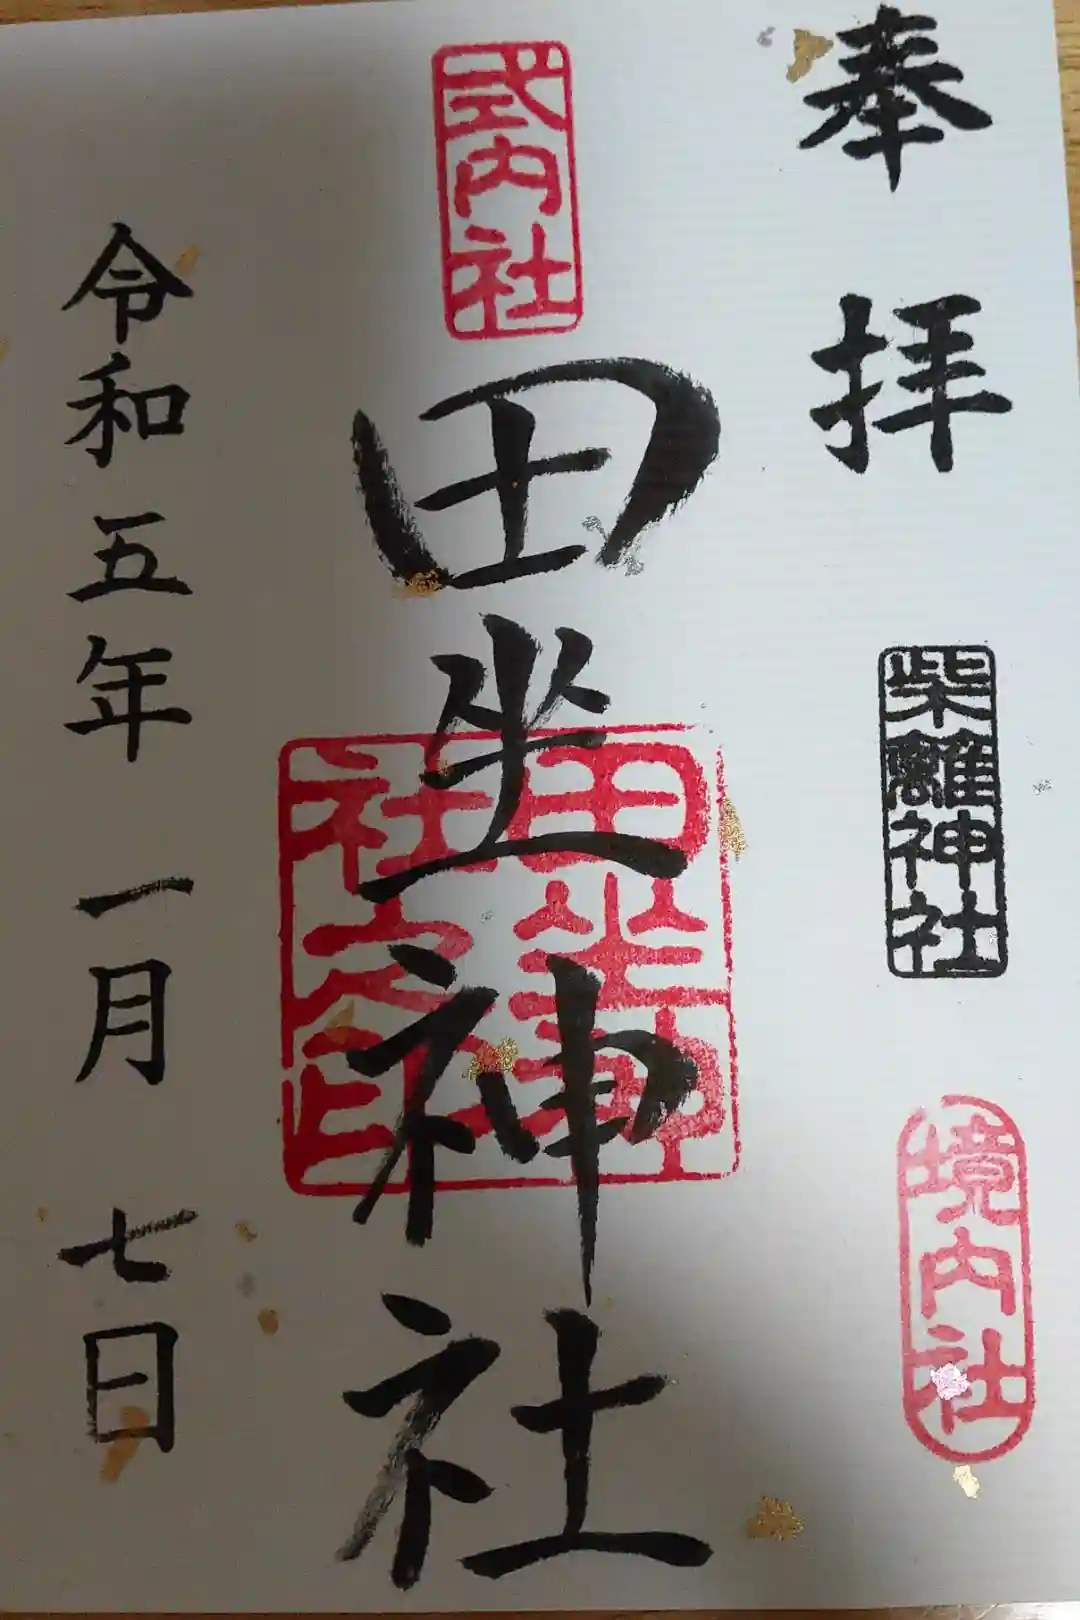 奉拝
柴離神社
境内社
式内社
田坐神社
田坐神社之印
令和五年一月七日